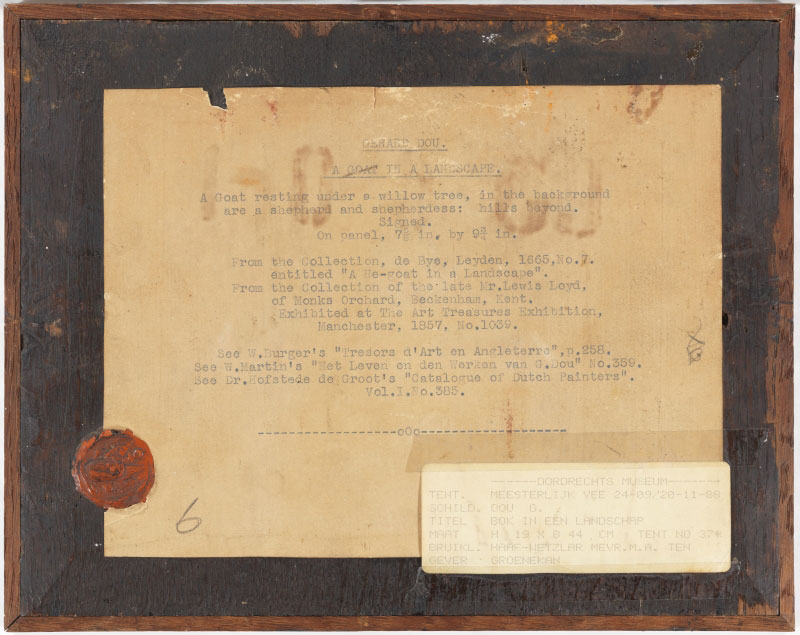 GERARD DOU.
A GOAT IN A LANDSCAPE.
A Goat resting under a willow tree, in the background
are a shepherd and shepherdess: hills beyond.
Signed.
On panel, 7⅝ in. by 9¾ in.
From the Collection, de Bye, Leyden, 1665,No.7.
entitled "A He-goat in a Landscape".
From the Collection of the late Mr.Lewis Loyd,
of Monks Orchard, Beckenham, Kent.
Exhibited at The Art Treasures Exhibition,
Manchester, 1857, No.1039.
See W.Burger's "Tresors d'Art en Angleterre",p.258.
See W.Martin's "Het Leven en den Werken van G.Dou" No.359.
See Dr.Hofstede de Groot's "Catalogue of Dutch Painters".
Vol.I.No.385.
--------------------oOo---------------------
6
-------DORDRECHTS MUSEUM-------
TENT. MEESTERLIJK VEE 24-09/20-11-88
SCHILD. DOU G.
TITEL BOK IN EEN LANDSCHAP
MAAT H 19 X B 44 CM TENT NO 37*
BRUIKL. HAAF-WETZLAR MEVR.M.A. TEN
GEVER GROENEKAN